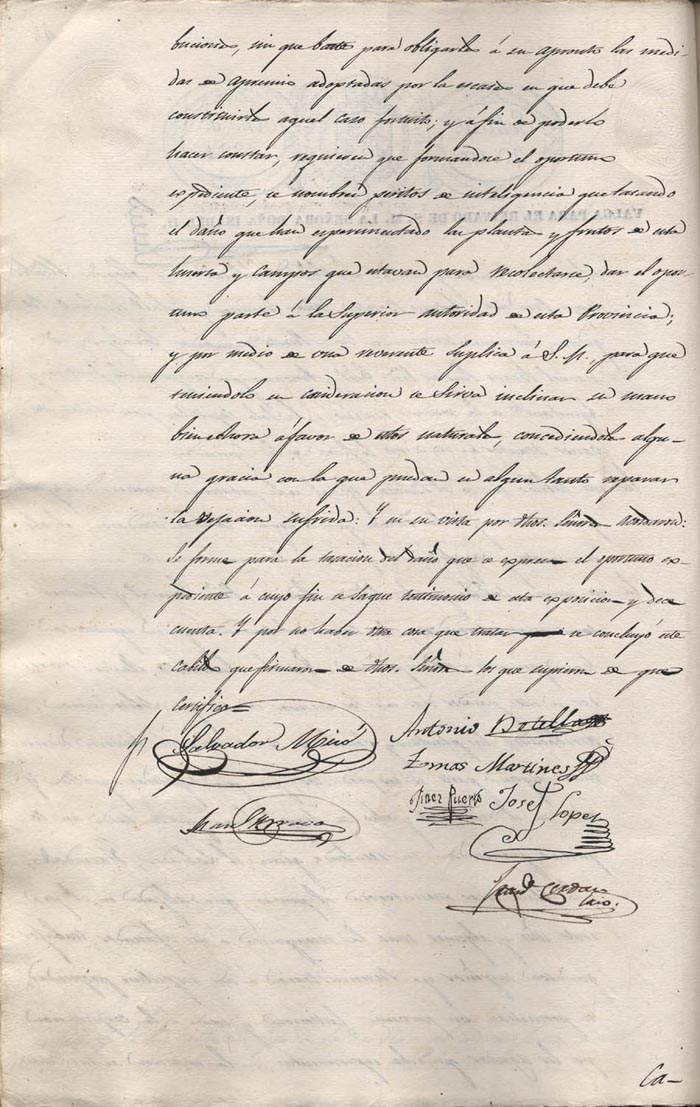 buciones, sin que baste para obligarles á su apronto las medi-
das de apremio adoptadas por la escases en que debe
constituirles aquel caso fortuito; y á fin de poderlo
hacer constar, requieren que formandose el oportuno
espediente, se nombren peritos de inteligencia que tasando
el daño que han esperimentado las plantas y frutos de esta
huerta y campos que estavan para recolectarse, dar el opor-
tuno parte á la Superior autoridad de esta Provincia;
y por medio de una reverente suplica á S. M., para que
teniendolo en consideracion se sirva inclinar su mano
bienechora á favor de estos naturales, concediendoles algu-
na gracia con la que puedan en algun tanto reparar
la vejacion sufrida: Y en su vista por dhos. Señores acordaron:
Se forme para la tasacion del daño que se expresa el oportuno ex-
pediente á cuyo fin se saque testimonio de esta exposicion y dece
cuenta. Y por no haber otra cosa que tratar se concluyó este
cabildo que firmaron de dhos. Señores los que supieron de que
certifico=
Salvador Miró
Antonio Botella
Tomas Martines
Giner Puerto
Jose Lopez
Juan
Franco. Cerdan
Srio.
Ca-
VALGA PARA EL REINADO DE S. M. LA SEÑORA DOÑA ISABEL II.